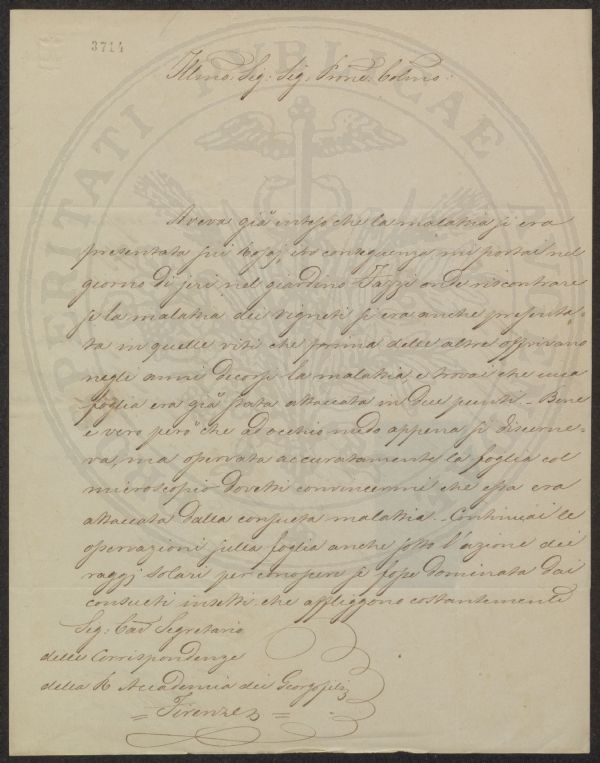 3714
Illmo. Sig: Sig. Prone. Colmo:
Aveva già inteso che la malattia si era
presentata sui Rosaj, e in conseguenza mi portai nel
giorno di jeri nel giardino Fazzi onde riscontrare
se la malattia dei vigneti si era anche presenta-
ta in quelle viti che prima delle altre offrivano
negli anni decorsi la malattia, e trovai che una
foglia era già stata attaccata in due punti. - Bene
è vero però che ad occhio nudo appena si discerne-
va, ma osservata accuratamente la foglia col
microscopio dovetti convincermi che essa era
attaccata dalla consueta malattia. - Continuai le
osservazioni sulla foglia anche sotto l'azione dei
raggj solari per conoscere se fosse dominata dai
consueti insetti che affliggono costantemente
Sig: Cav Segretario
delle Corrispondenze
della R Accademia dei Georgofili
= Firenze =
PERITATI PUBLICAE